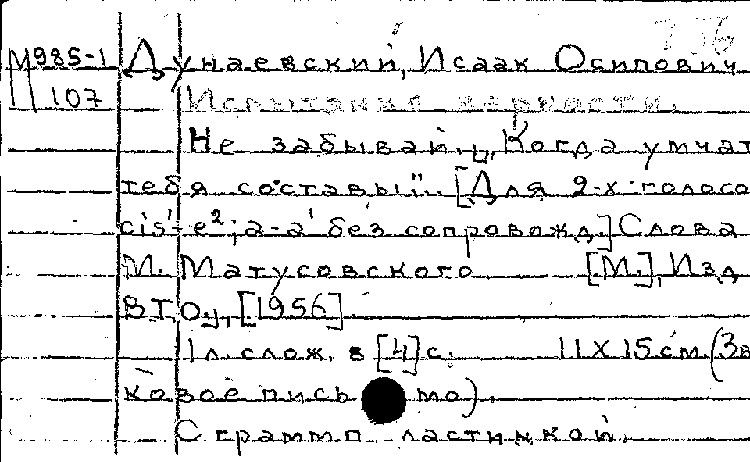 736
М985-1 Дунаевский, Исаак Осипович
107 Испытание верности.
Не забывай. „Когда умчат
тебя составы". [Для 2-х голосо
cis¹-e²; a-a¹ без сопровожд.] Слова
М. Матусовского [М.], Изд
ВТО, [1956].
1 л. слож. в [4] с. 11X15 см (Зв
ковое письмо).
С граммпластинкой.